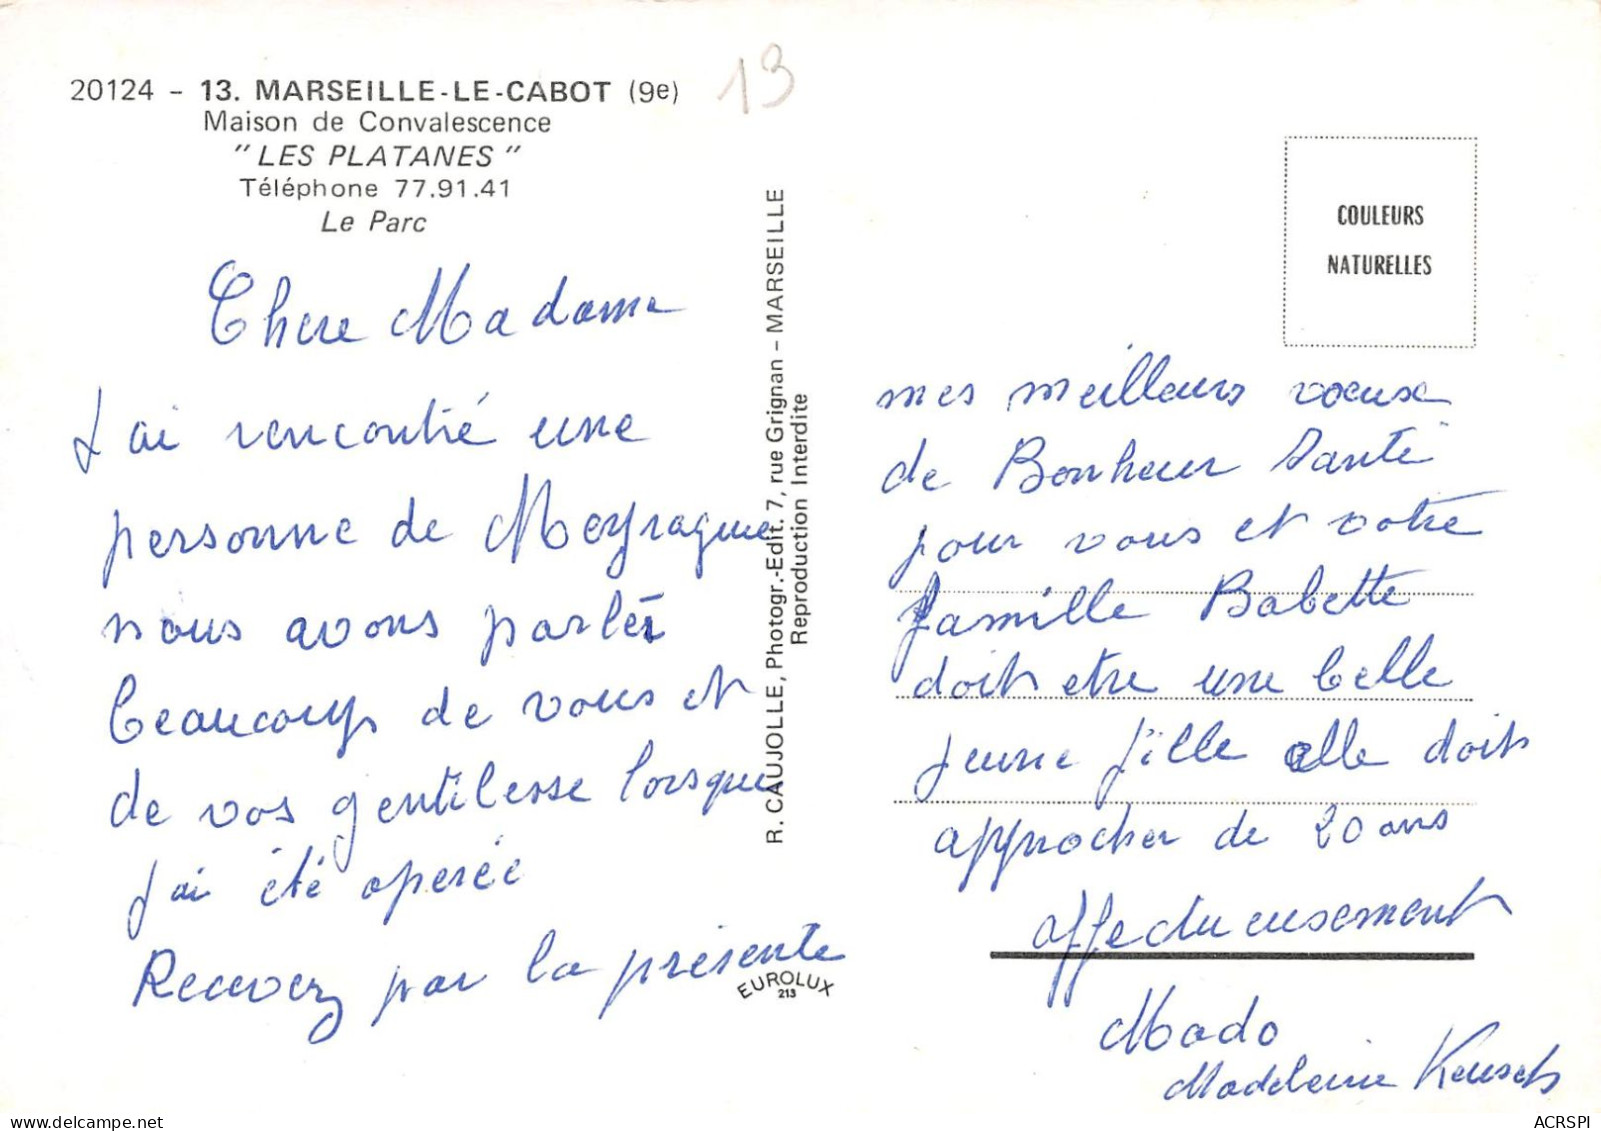 20124 - 13. MARSEILLE-LE-CABOT (9e)
Maison de Convalescence
"LES PLATANES"
Téléphone 77.91.41
Le Parc
13
Chere Madame
J ai rencontré une
personne de Meyrague
nous avons parlér
beaucoup de vous et
de vos gentilesse lorsque
j'ai été operée
Recevez par la présente
R. CAUJOLLE, Photogr.-Edit. 7, rue Grignan - MARSEILLE
Reproduction Interdite
EUROLUX
213
COULEURS
NATURELLES
mes meilleurs voeuse
de Bonheur Santé
pour vous et votre
famille Babette
doit etre une belle
jeune fille elle doit
approcher de 20 ans
affectueusement
Mado
Madeleine
ACRSPI